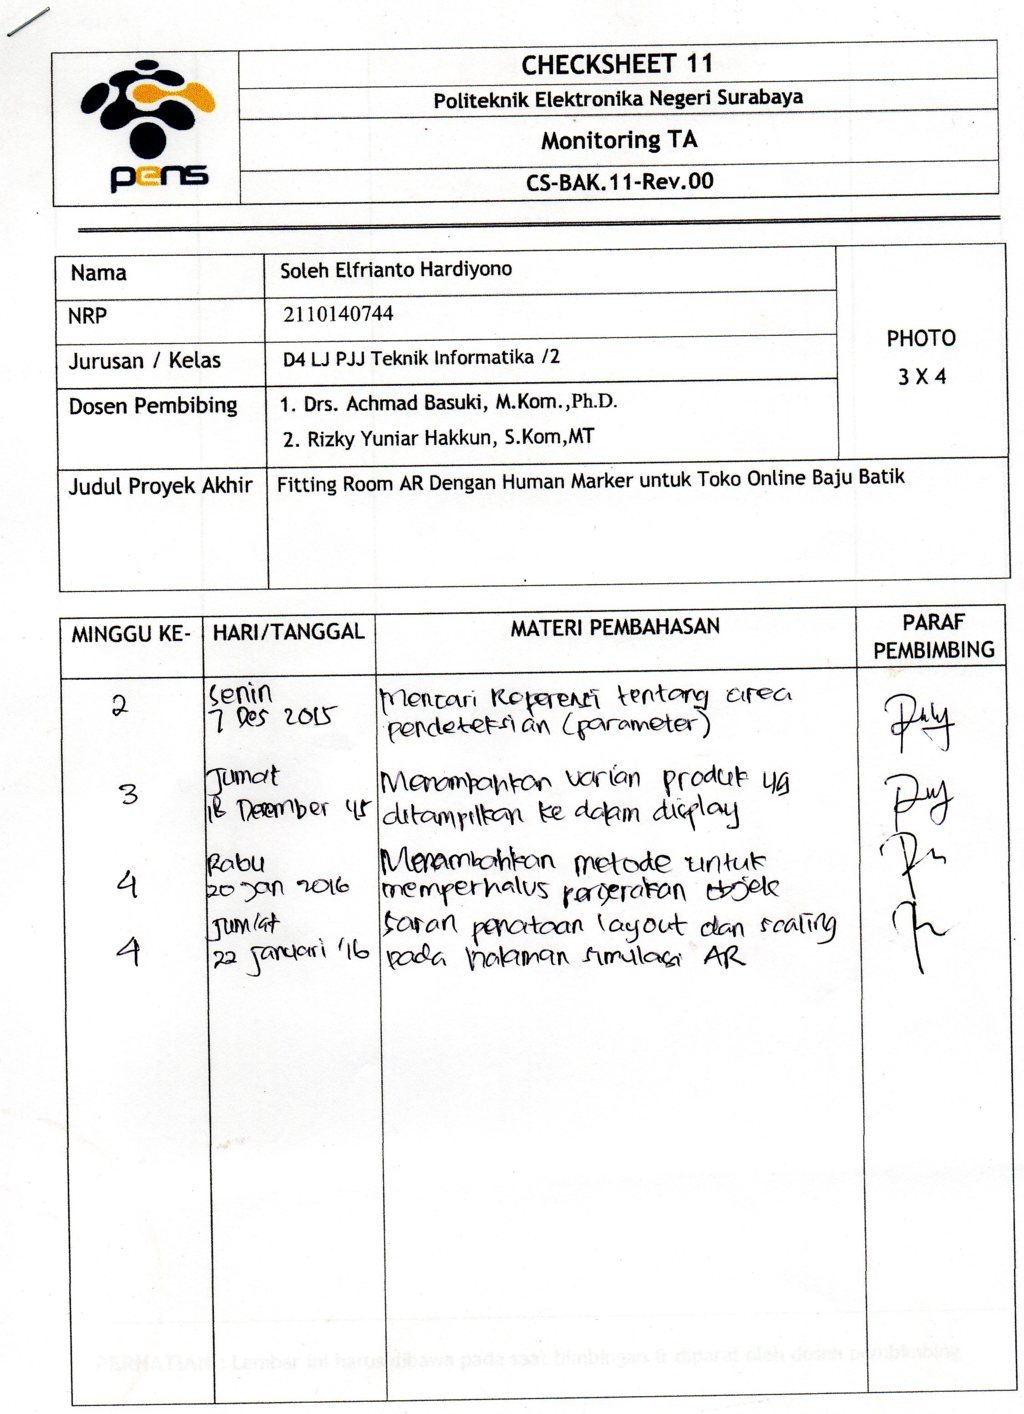 pens
CHECKSHEET 11
Politeknik Elektronika Negeri Surabaya
Monitoring TA
CS-BAK.11-Rev.00
Nama
Soleh Elfrianto Hardiyono
NRP
2110140744
Jurusan / Kelas
D4 LJ PJJ Teknik Informatika /2
Dosen Pembibing
1. Drs. Achmad Basuki, M.Kom.,Ph.D.
2. Rizky Yuniar Hakkun, S.Kom,MT
PHOTO
3 X 4
Judul Proyek Akhir
Fitting Room AR Dengan Human Marker untuk Toko Online Baju Batik
MINGGU KE-
HARI/TANGGAL
MATERI PEMBAHASAN
PARAF
PEMBIMBING
2
Senin
7 Des 2015
Mencari Referensi tentang area
pendeteksian (parameter)
3
Jumat
18 Desember
Menambahkan varian produk yg
ditampilkan ke dalam display
4
Rabu
20 Jan 2016
Menambahkan metode untuk
memperhalus pergerakan objek
4
Jum'at
22 Januari '16
Saran penataan layout dan scaling
pada halaman simulasi AR
PERHATIAN : Lembar ini harus dibawa pada saat bimbingan & diparaf oleh dosen pembimbing